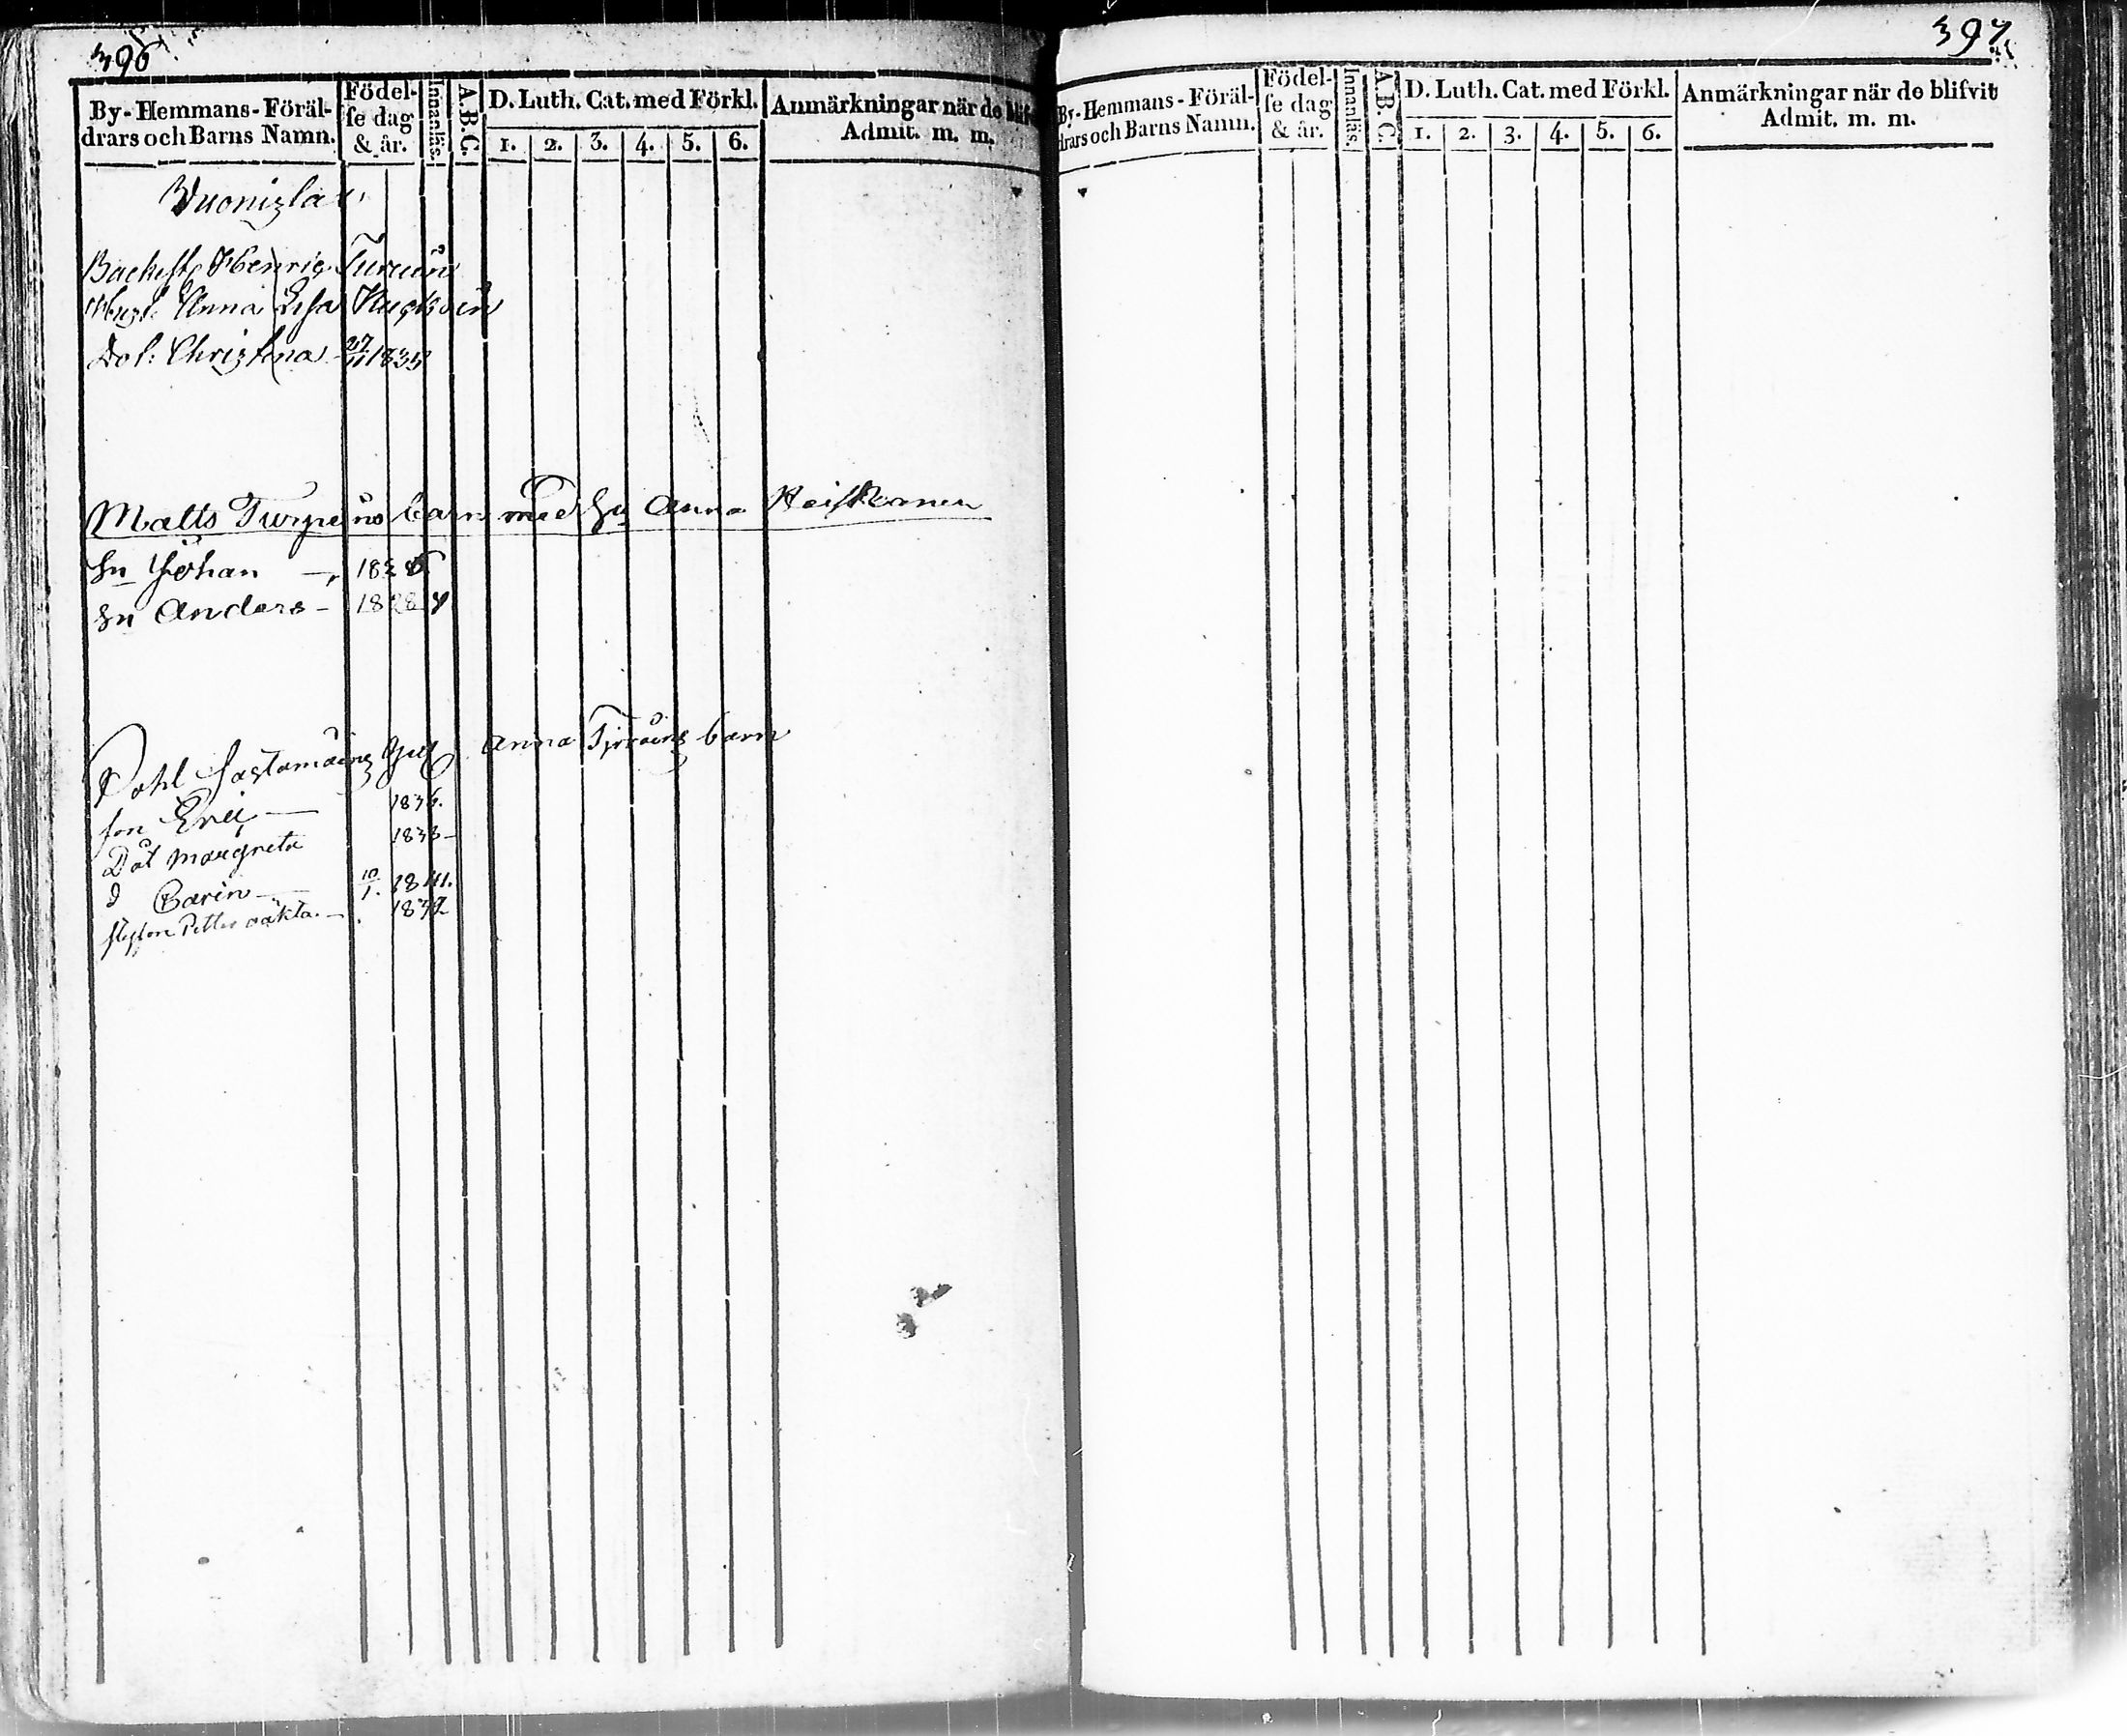 396
By-Hemmans-Föräl-
drars och Barns Namn.
Födel-
se dag
& år.
Innanläs.
A.B.C.
D. Luth. Cat. med Förkl.
1. 2. 3. 4. 5. 6.
Anmärkningar när de blifv
Admit. m. m.
Vuonizla
Henric
Anna Lisa
Dot: Christina 27/11 1835
Matts barn med Hu Anna Heiskanen
Sn Johan —
Sn Anders —
Pohl Anna barn
son Eric — 1836.
Dåt Margreta 1838 —
d Carin — 10/1. 1841.
Petter oäkta. —
397
By-Hemmans-Föräl-
drars och Barns Namn.
Födel-
se dag
& år.
Innanläs.
A.B.C.
D. Luth. Cat. med Förkl.
1. 2. 3. 4. 5. 6.
Anmärkningar när de blifvit
Admit. m. m.